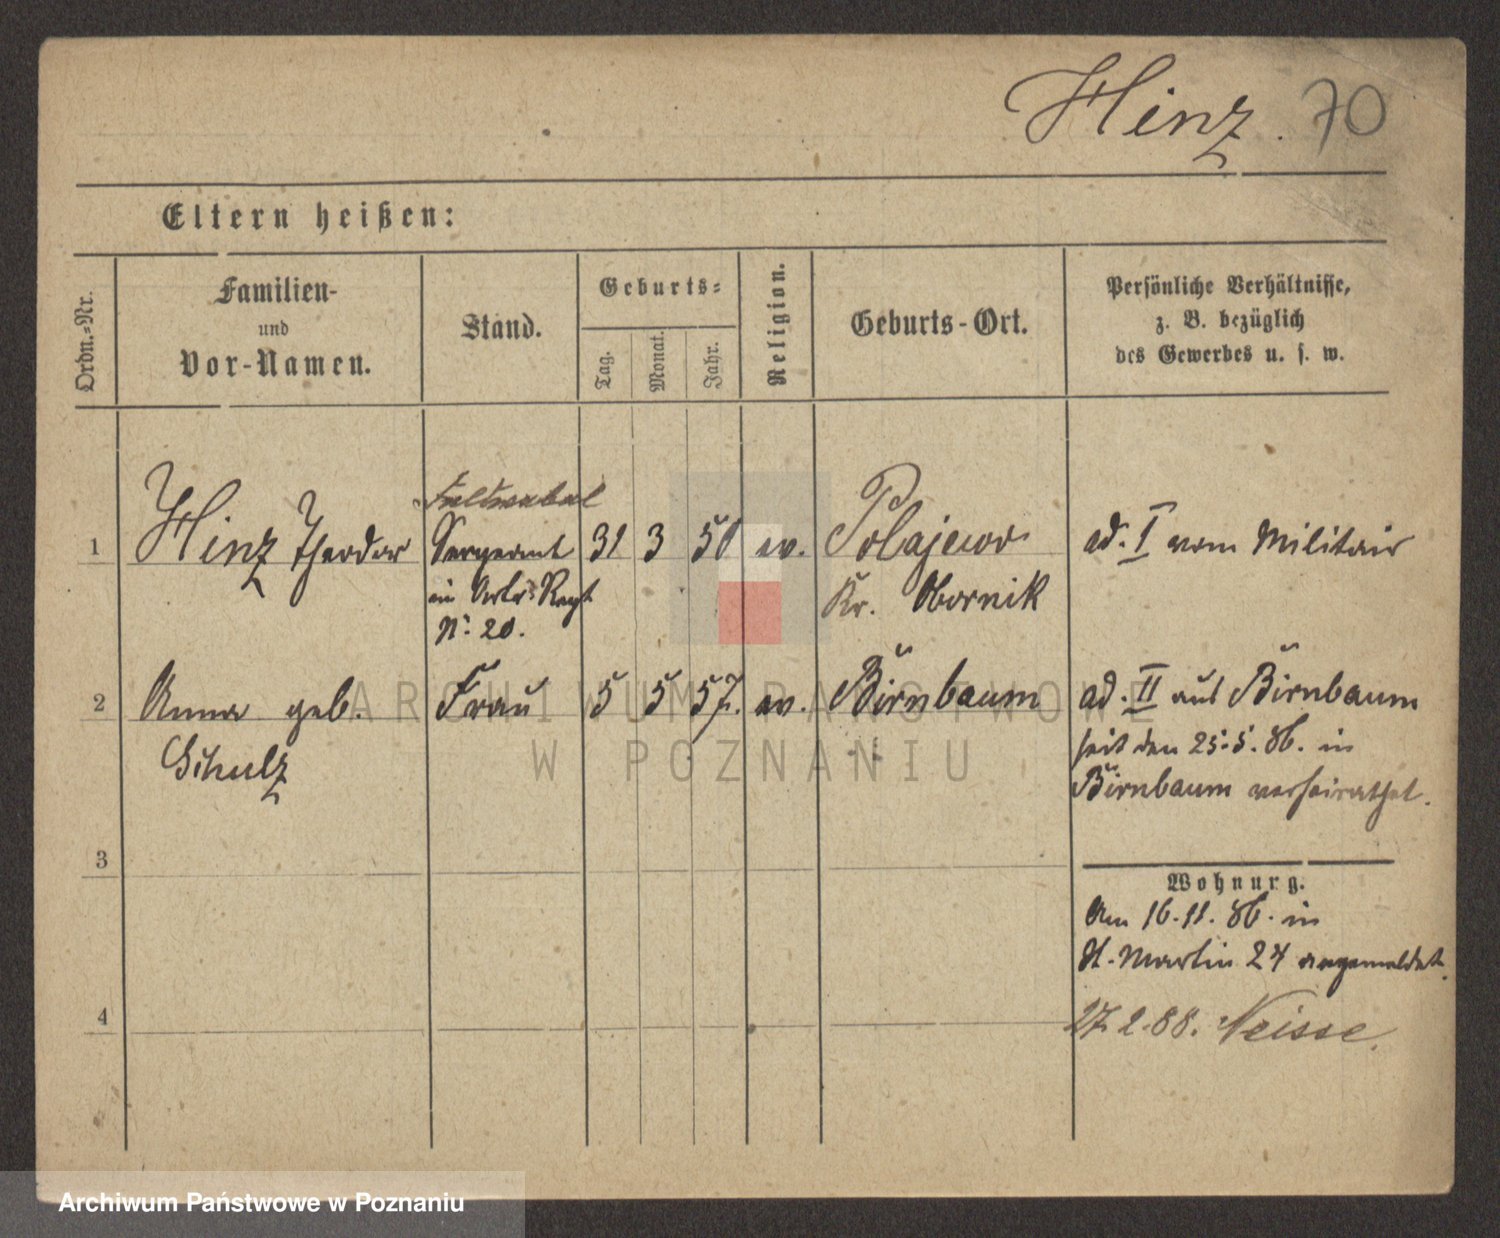 Hinz. 70
Eltern heißen:
Ordn.=Nr.
Familien-
und
Vor-Namen.
Stand.
Geburts=
Tag.
Monat.
Jahr.
Religion.
Geburts-Ort.
Persönliche Verhältnisse,
z. B. bezüglich
des Gewerbes u. s. w.
Feldwebel
1 Hinz Theodor Sergeant 31 3 50 ev. Polajewo ad. I vom Militair
im Regt Kr. Obornik
No. 20.
2 Anna geb. Frau 5 5 57. ev. Birnbaum ad. II aus Birnbaum
Schulz seit den 25.5.86. in
Birnbaum verheirathet.
3
Wohnung.
Am 16.11.86. in
St. Martin 24 angemeldet.
4 27.2.88. Neisse.
ARCHIWUM PAŃSTWOWE
W POZNANIU
Archiwum Państwowe w Poznaniu